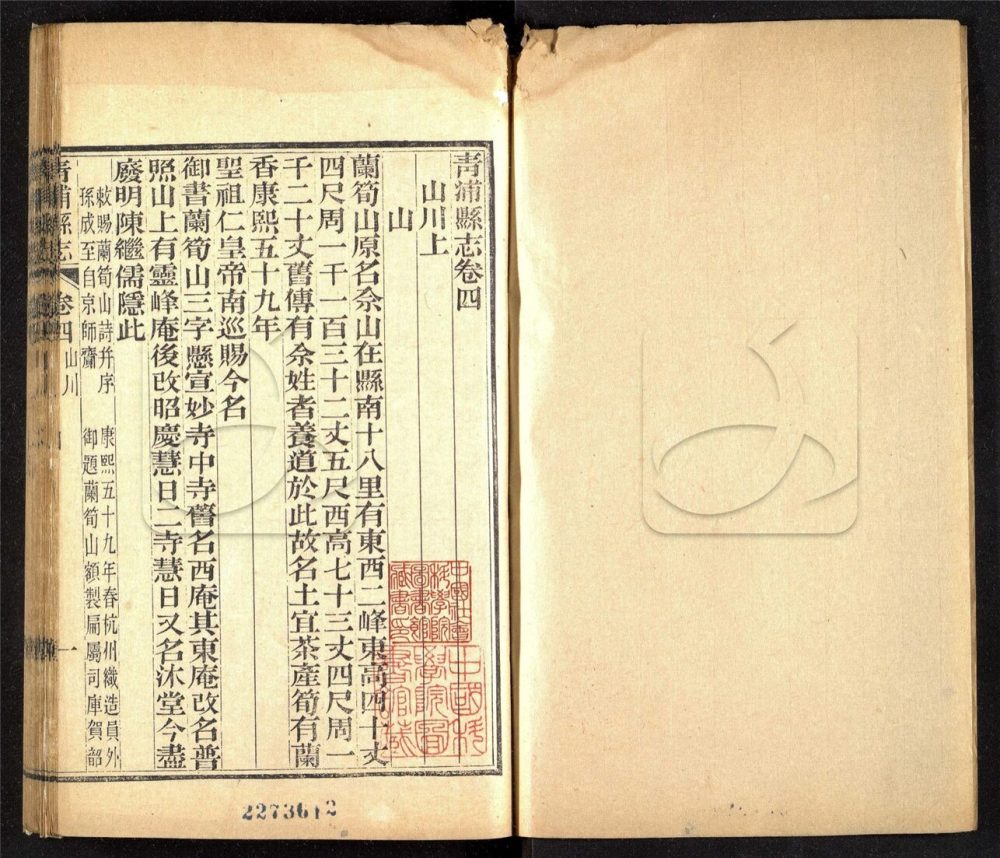 青浦縣志卷四
山川上
山
蘭筍山原名佘山在縣南十八里有東西二峰東高四十丈
四尺周一千一百三十二丈五尺西高七十三丈四尺周一
千二十丈舊傳有佘姓者養道於此故名土宜茶產筍有蘭
香康熙五十九年
聖祖仁皇帝南巡賜今名
御書蘭筍山三字懸宣妙寺中寺舊名西庵其東庵改名普
照山上有靈峰庵後改昭慶慧日二寺慧日又名沐堂今盡
廢明陳繼儒隱此
敕賜蘭筍山詩并序 康熙五十九年春杭州織造員外
孫成至自京師齎 御題蘭筍山額製扁屬司庫賀韶
青浦縣志 卷四 山川 一
中國社會科學院圖書館藏書印
2273612